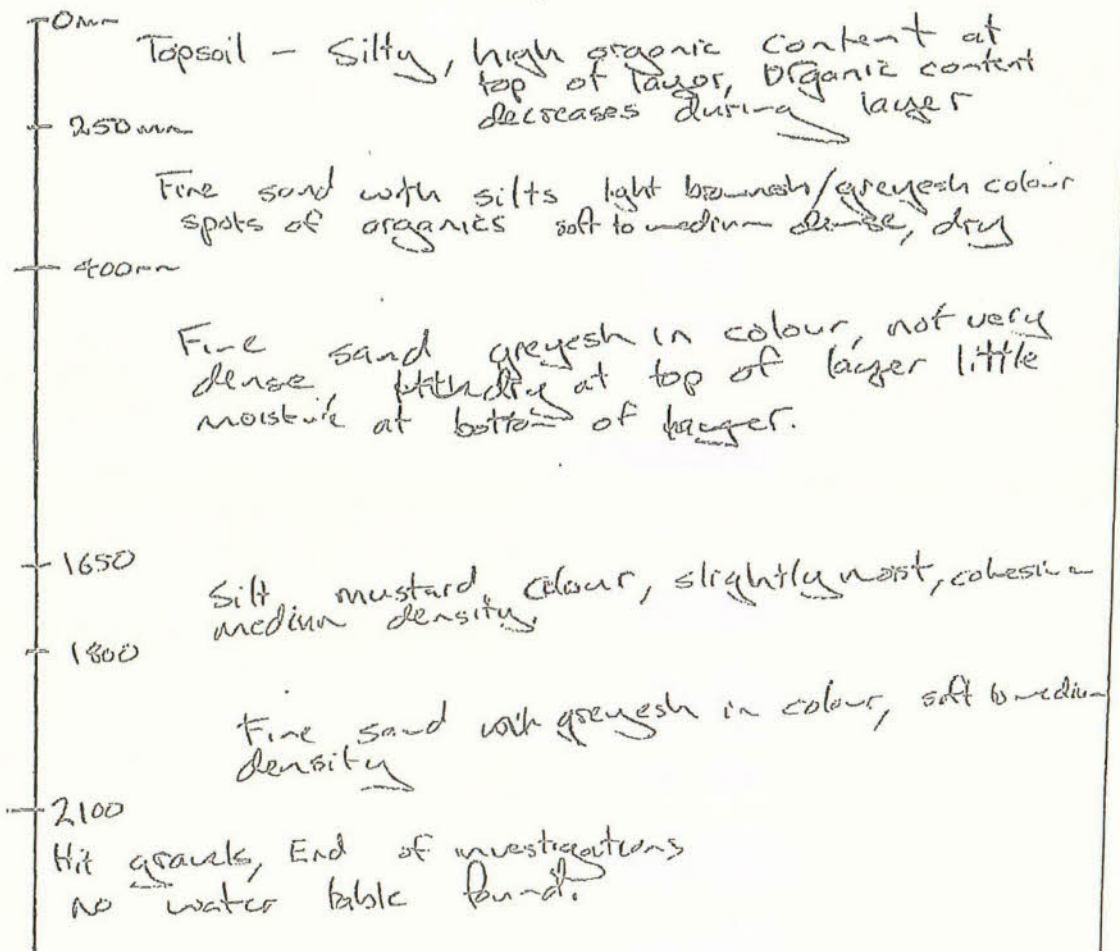 0mm
Topsoil - Silty, high organic content at
top of layer, organic content
decreases during layer
250mm
Fine sand with silts light brownesh/greyesh colour
spots of organics soft to medium dense, dry
400mm
Fine sand greyesh in colour, not very
dense dry at top of layer little
moisture at bottom of layer.
1650
Silt mustard colour, slightly moist, cohesive
medium density.
1800
Fine sand with greyesh in colour, soft to medium
density
2100
Hit gravels, End of investigations
no water table found.